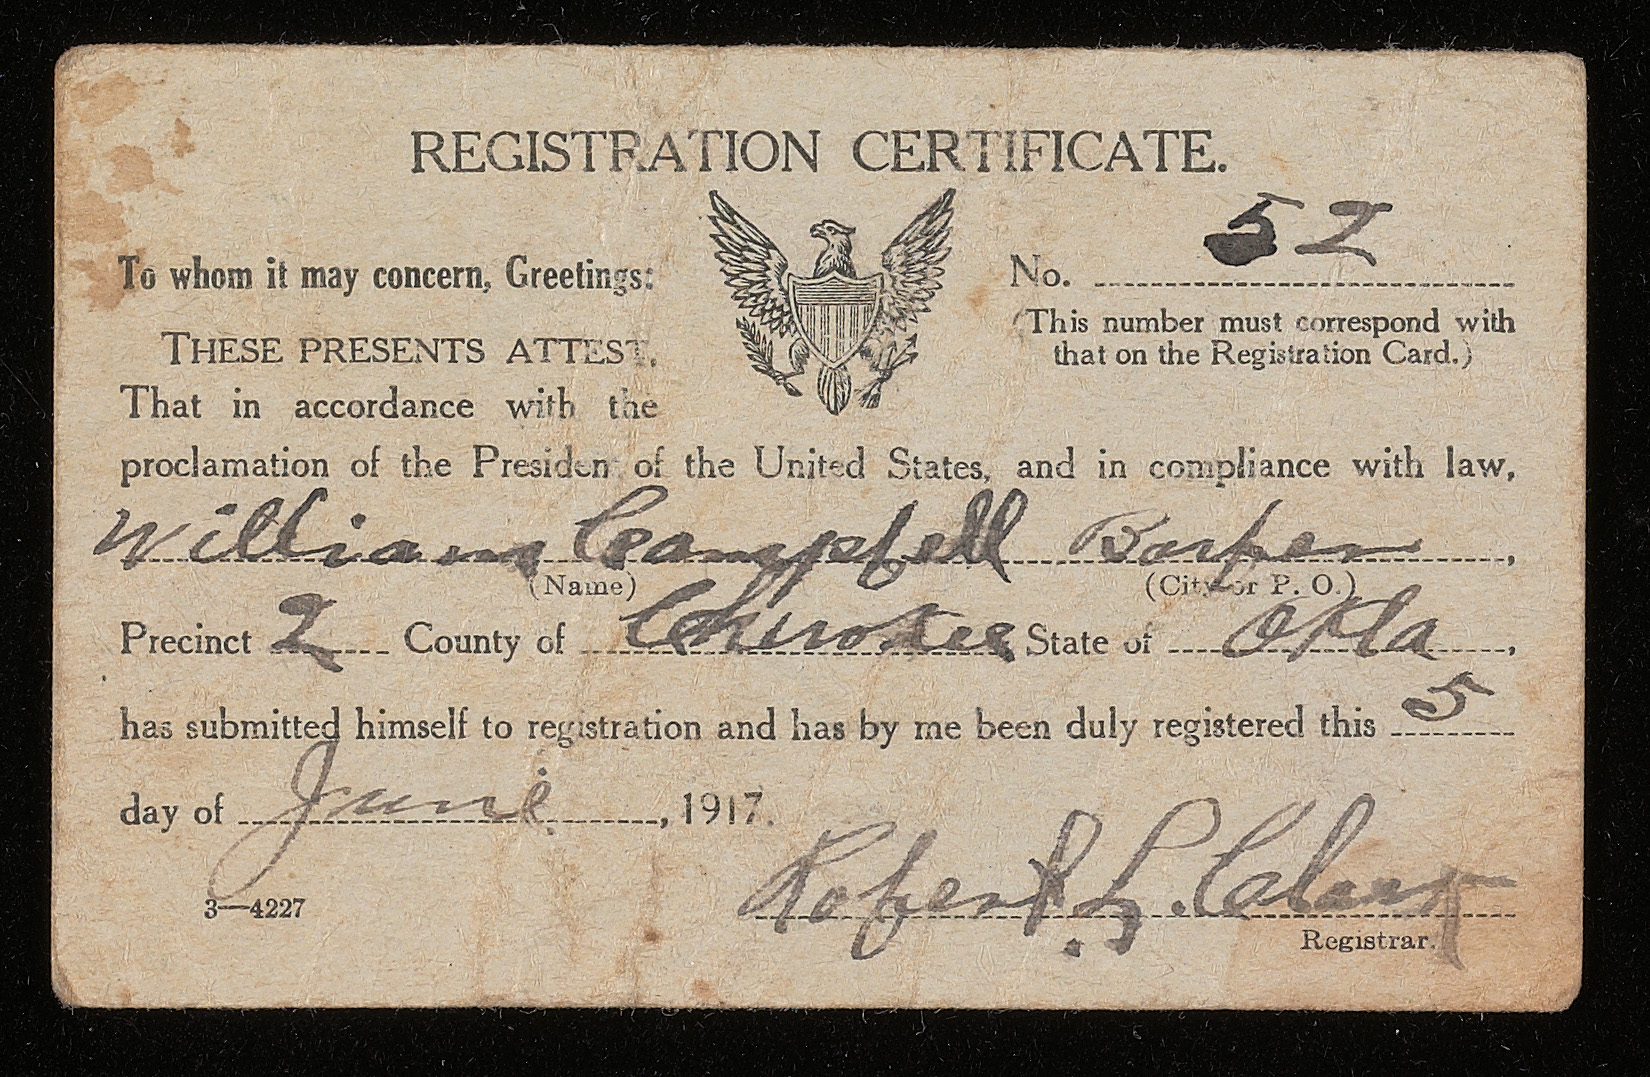 REGISTRATION CERTIFICATE.
To whom it may concern, Greetings:
No. 52
(This number must correspond with
that on the Registration Card.)
THESE PRESENTS ATTEST,
That in accordance with the
proclamation of the President of the United States, and in compliance with law,
William Campbell Barber,
(Name) (City or P. O.)
Precinct 2 County of Cherokee State of Okla,
has submitted himself to registration and has by me been duly registered this 5
day of June, 1917.
Robert L. Clark
3—4227
Registrar.